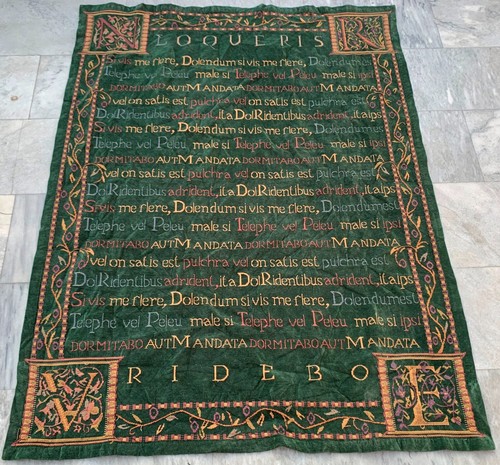 N LOQUERIS R
Sivis me flere, Dolendum si vis me flere, Dolendumes
Telephe vel Peleu male si Telephe vel Peleu male si ipsi
DORMITABO AUT MANDATA DORMITABO AUT MANDATA
vel on satis est pulchra vel on satis est pulchra est
DolRidentibus adrident, ita DolRidentibus adrident, ita ips
Sivis me flere, Dolendum si vis me flere, Dolendumest
Telephe vel Peleu male si Telephe vel Peleu male si ipsi
DORMITABO AUT MANDATA DORMITABO AUT MANDATA
vel on satis est pulchra vel on satis est pulchra est
DolRidentibus adrident, ita DolRidentibus adrident, ita ips
Sivis me flere, Dolendum si vis me flere, Dolendumest
Telephe vel Peleu male si Telephe vel Peleu male si ipsi
DORMITABO AUT MANDATA DORMITABO AUT MANDATA
vel on satis est pulchra vel on satis est pulchra est
DolRidentibus adrident, ita DolRidentibus adrident, ita ips
Sivis me flere, Dolendum si vis me flere, Dolendumest
Telephe vel Peleu male si Telephe vel Peleu male si ipsi
DORMITABO AUT MANDATA DORMITABO AUT MANDATA
RIDEBO E